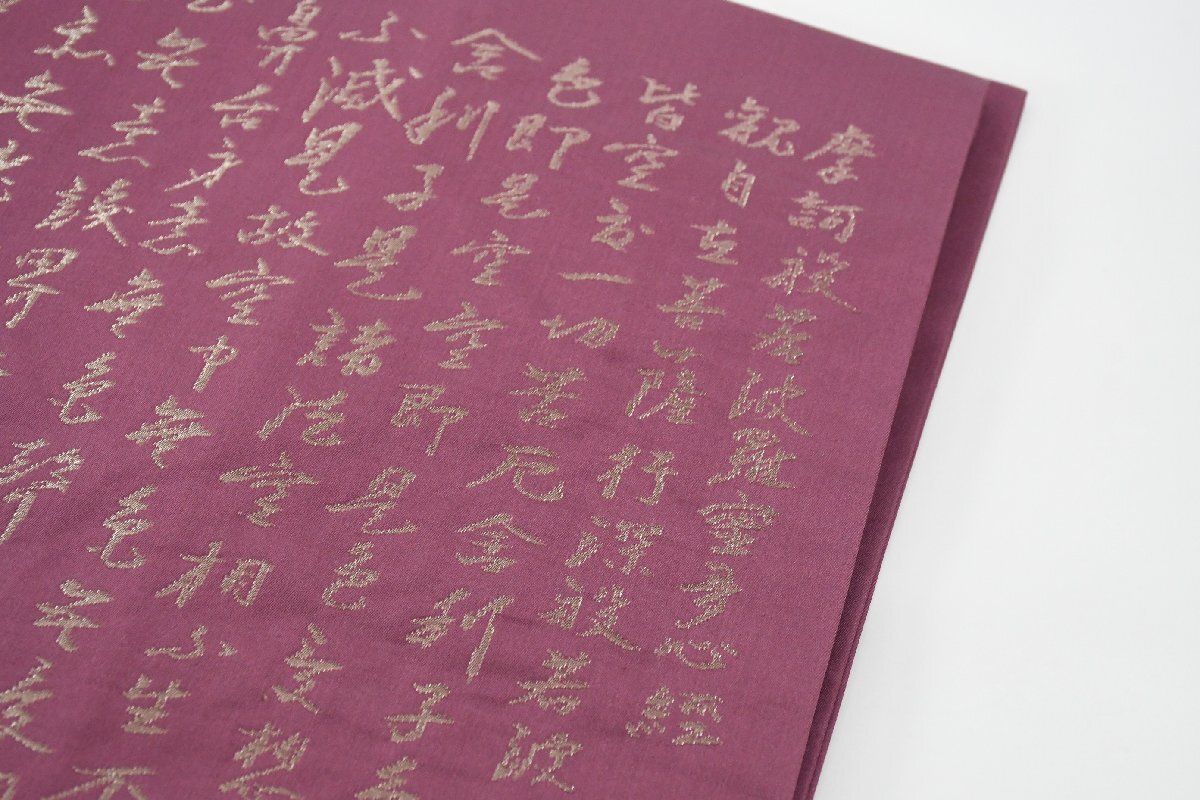 摩訶般若波羅蜜多心經
觀自在菩薩行深般若波
皆空度一切苦厄舍利子
色即是空空即是色受想
舍利子是諸法空相不生不
不減是故空中無色無受
鼻舌身意無色聲
無意識界
無